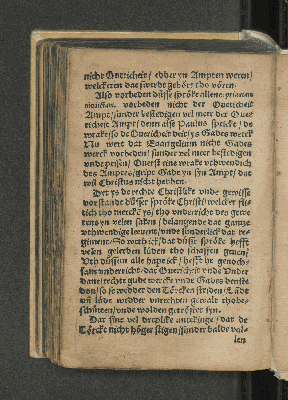 nicht Ouericheit / edder yn Ampten weren /
welckeren dat swerdt gehört tho vören.
Also vorbeden düsse spröke allene priuatam
vindictam. vorbeden nicht der Ouericheit
Ampt / sunder bestedigen vel mer der Oue
richeit Ampt / denn alse Paulus spricke / de
wrake / so de Ouericheit deit ys Gades werck
Nu wert dat Euangelium nicht Gades
werck vorbeden / sunder vel meer bestedigen
vnde prisen / Ouerst eine wrake vthwendich
des Amptes / gript Gade yn syn Ampt / dat
wil Christus nicht hebben.
Dit ys de rechte Christlike vnde gewisse
vorstande düsser spröke Christi / welcker
tich tho mercke ys / tho vnderricht des gewe
tens yn velen saken / belangende dat gantze
vthwendige leuent / vnde sunderlick dat re
giment / So weth ick / dat düsse spröke hefft
velen gelerden lüden tho schaffen geuen /
Vth düssem alle hapeick / hefft yr genoch-
sam vnderricht / dat Ouericheit vnde Vnder
dane / rechte gude wercke vnde Gades denste
don / so se wedder den Törcken striden / Läde
vñ lüde wedder vnrechten gewalt thobe-
schütten / vnde wolden getröstet syn.
Dar sint vel drepplike antekinge / dat de
Törcke nicht höger stigen / sunder balde val-
len